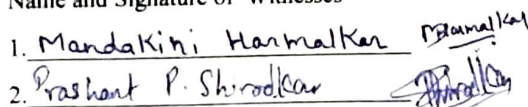 Name and Signature of Witnesses
1. Mandakini Harmalkar
2. Prashant P. Shirodkar